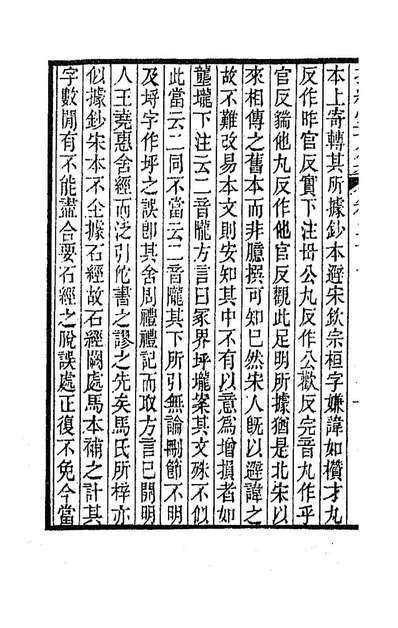 本上寄轉其所據鈔本避宋欽宗桓字嫌諱如欑才九
反作昨官反實下注毌公九反作公歡反完音丸作乎
官反貒他九反作他官反觀此足明所據猶是北宋以
來相傳之舊本而非臆撰可知已然宋人旣以避諱之
故不難改易本文則安知其中不有以意爲增損者如
壟壠下注云二音隴方言曰冢界坪壠案其文殊不似
此當云二同不當云二音隴其下所引無論刪節不明
及埒字作坪之誤卽其舍周禮禮記而取方言已開明
人王堯惠舍經而泛引佗書之謬之先矣馬氏所梓亦
似據鈔宋本不全據石經故石經闕處馬本補之計其
字數閒有不能盡合要石經之脫誤處正復不免今當